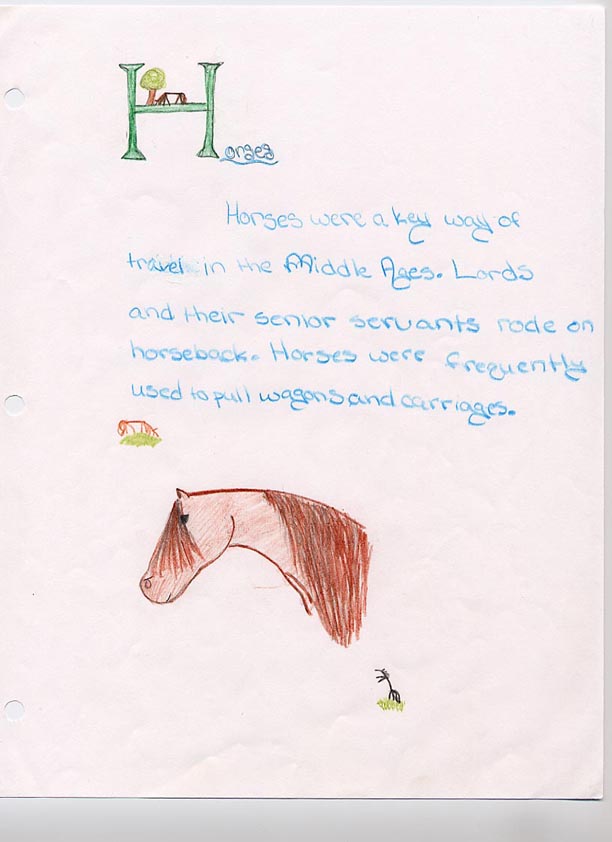 Horses
Horses were a key way of
travel in the Middle Ages. Lords
and their senior servants rode on
horseback. Horses were frequently
used to pull wagons and carriages.